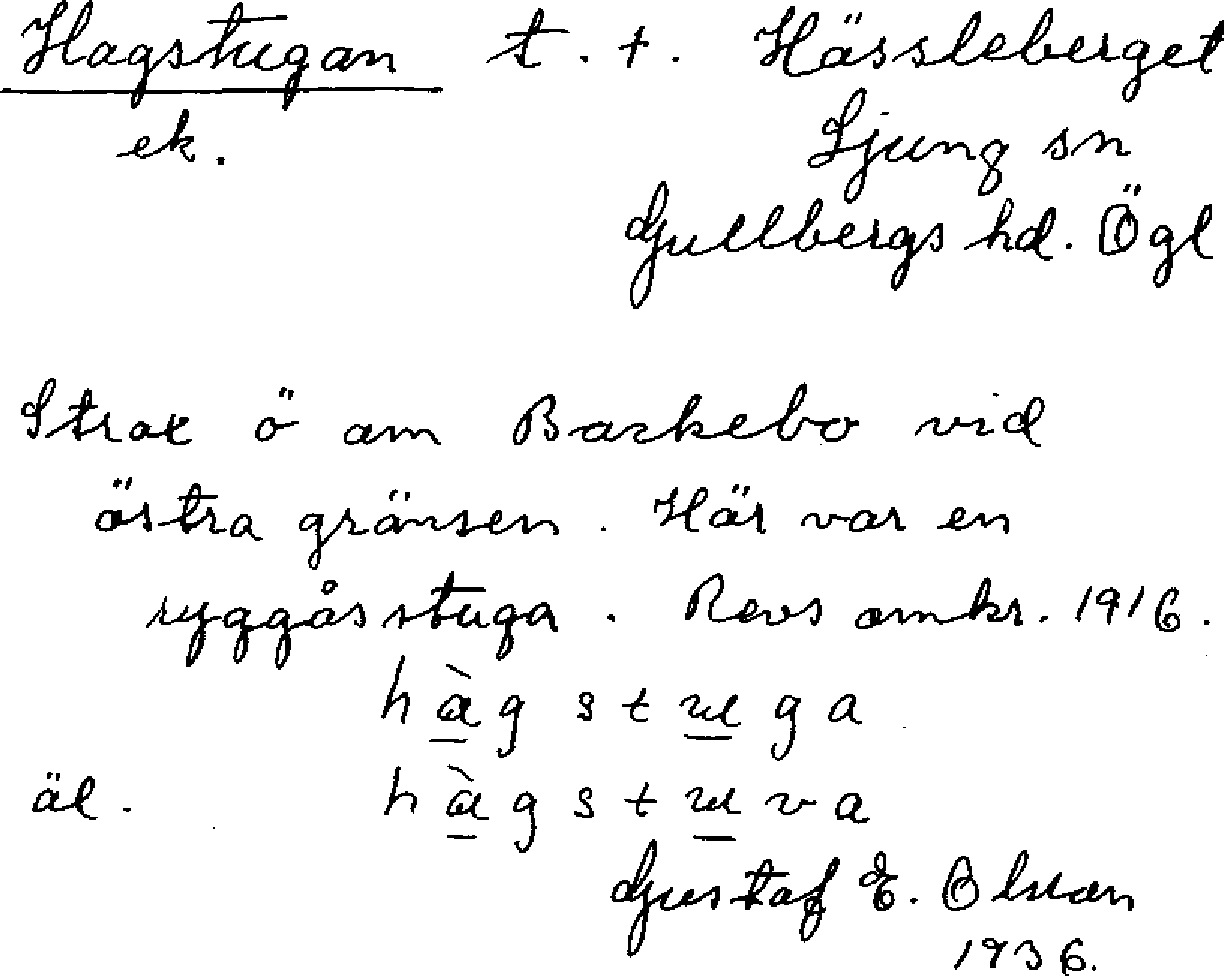 Hagstugan t. t. Hässleberget
ek. Ljung sn
Gullbergs hd. Ögl
Strax ö om Barkebo vid
östra gränsen. Här var en
ryggåsstuga. Revs omkr. 1916.
hàgstuga
äl. hàgstuva
Gustaf E. Olson
1936.